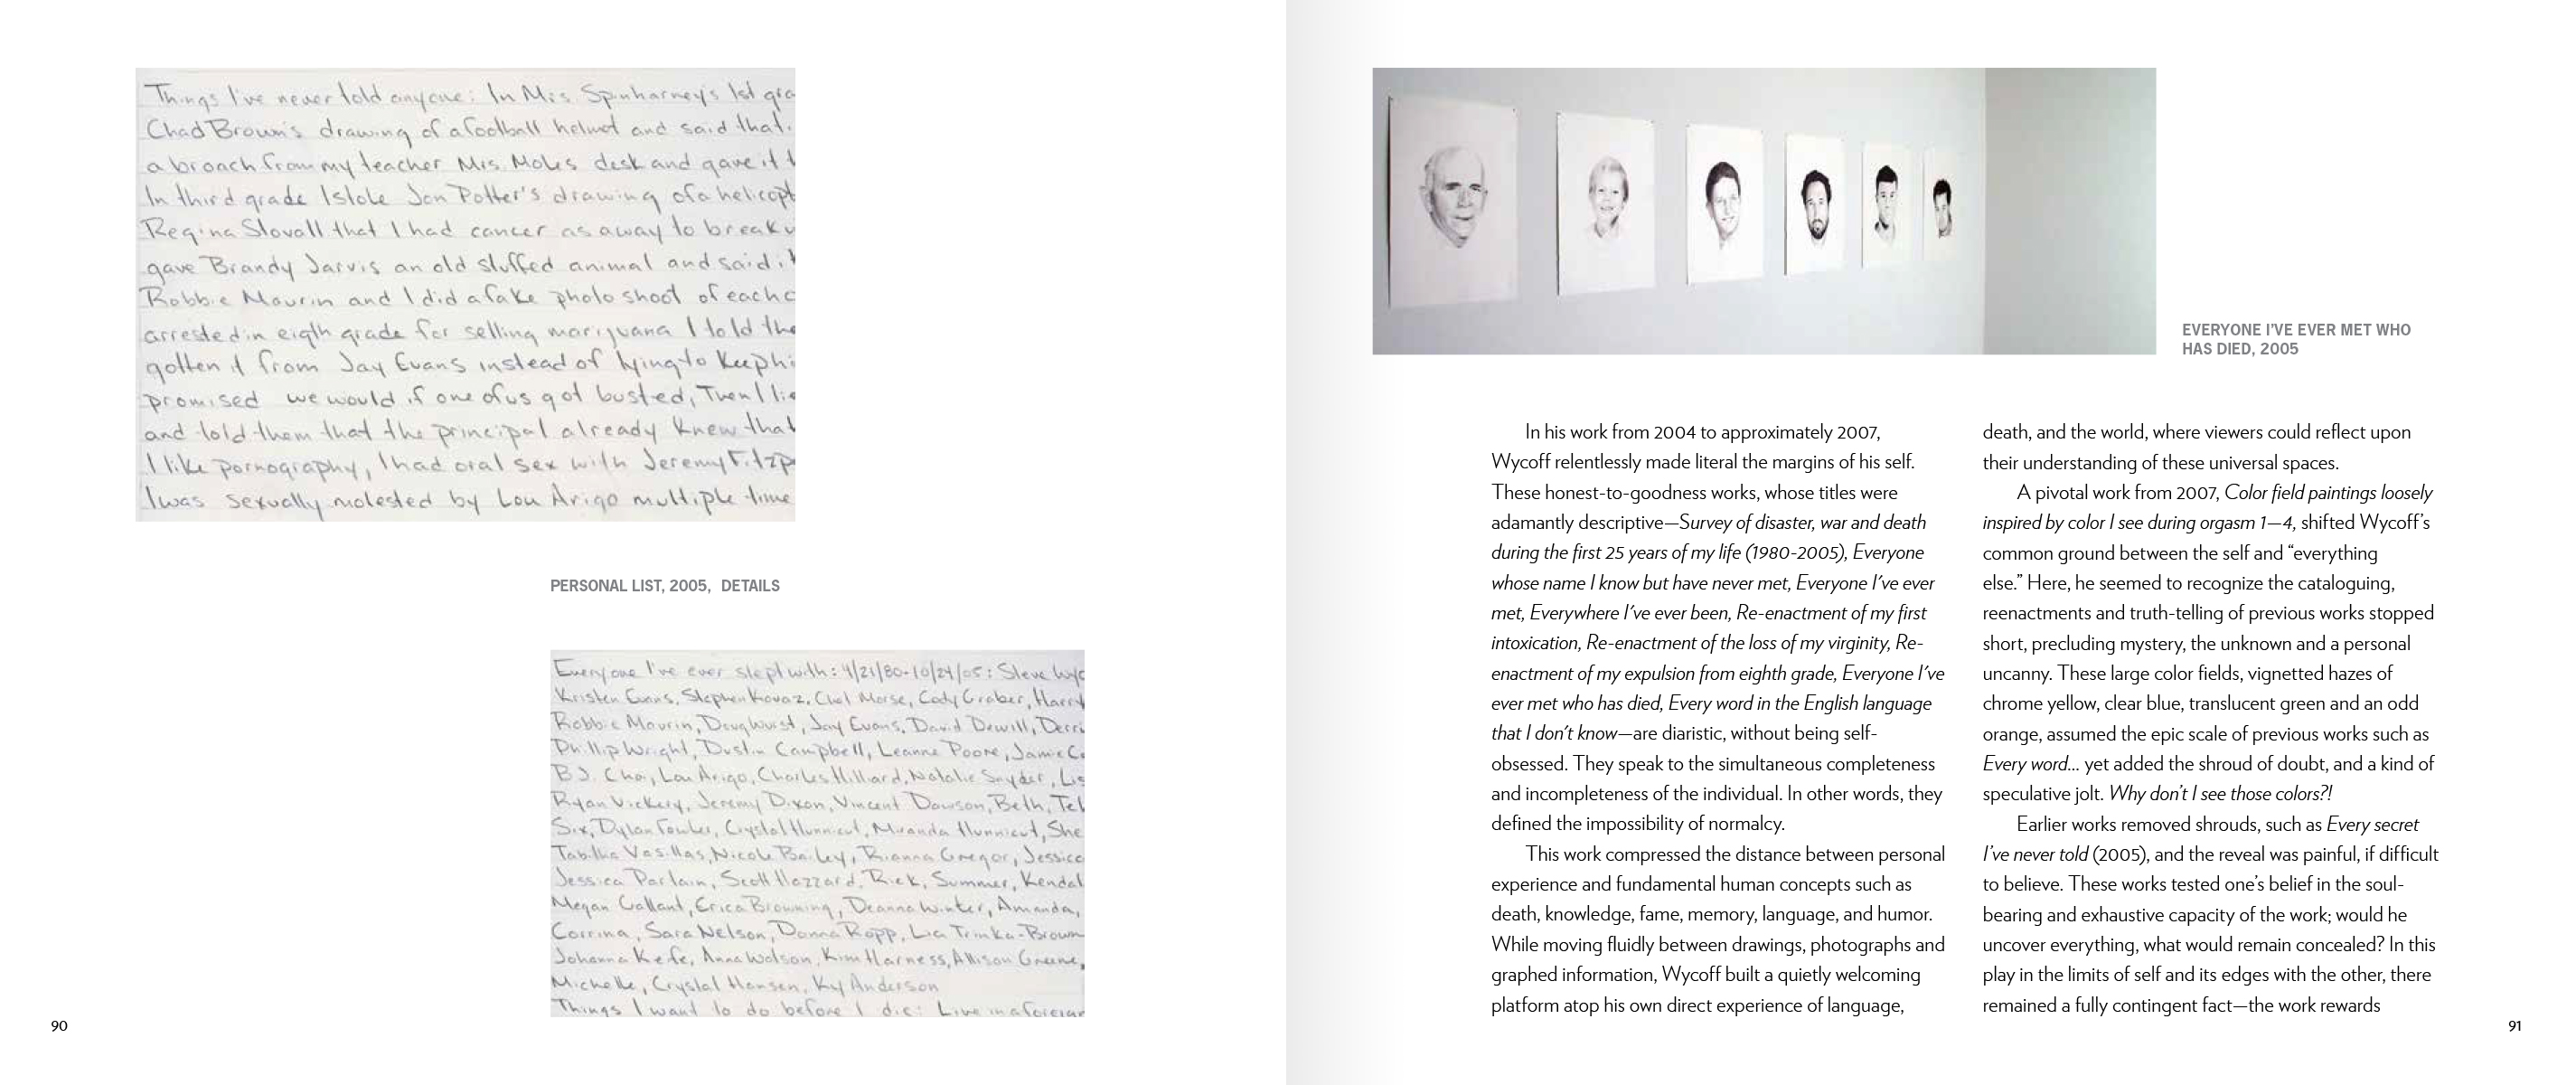 Things I've never told anyone: In Mrs. 1st gra
Chad Brown's drawing of a football helmet and said that
a broach from my teacher Mrs. Moles desk and gave it t
In third grade I stole Jon Potter's drawing of a helicopt
Regina Stovall that I had cancer as a way to break u
gave Brandy Jarvis an old stuffed animal and said it
Robbie Maurin and I did a fake photo shoot of each o
arrested in eigth grade for selling marijuana I told the
gotten it from Jay Evans instead of lying to keep hi
promised we would if one of us got busted, Then I lie
and told them that the principal already knew that
I like pornography, I had oral sex with Jeremy Fitzp
I was sexually molested by Lou Arigo multiple time
PERSONAL LIST, 2005, DETAILS
Everyone I've ever slept with: 4/21/80-10/24/05: Steve Wyc
Kristen Evans, Stephen Kovaz, Chel Morse, Cody Graber, Harry
Robbie Maurin, Doug Wurst, Jay Evans, David Dewill, Derri
Phillip Wright, Dustin Campbell, Leanne Poore, Jamie C
B.J. Choi, Lou Arigo, Charles Hilliard, Natalie Snyder, Lis
Ryan Vickery, Jeremy Dixon, Vincent Dawson, Beth, Tel
Six, Dylan Fowler, Crystal Hunnicut, Miranda Hunnicut, She
Tabitha Nicole Bailey, Rianna Gregor, Jessica
Jessica Partain, Scott Hazzard, Rick, Summer, Kendal
Megan Gallant, Erica Browning, Deanna Winter, Amanda,
Corrina, Sara Nelson, Donna Ropp, Lia Trinka-Brown
Johanna Kefe, Anna Watson, Kim Harness, Allison Greene,
Michelle, Crystal Hansen, Ky Anderson
Things I want to do before I die: Live in a foreign
90
EVERYONE I'VE EVER MET WHO
HAS DIED, 2005
In his work from 2004 to approximately 2007,
Wycoff relentlessly made literal the margins of his self.
These honest-to-goodness works, whose titles were
adamantly descriptive—Survey of disaster, war and death
during the first 25 years of my life (1980-2005), Everyone
whose name I know but have never met, Everyone I've ever
met, Everywhere I've ever been, Re-enactment of my first
intoxication, Re-enactment of the loss of my virginity, Re-
enactment of my expulsion from eighth grade, Everyone I've
ever met who has died, Every word in the English language
that I don't know—are diaristic, without being self-
obsessed. They speak to the simultaneous completeness
and incompleteness of the individual. In other words, they
defined the impossibility of normalcy.
This work compressed the distance between personal
experience and fundamental human concepts such as
death, knowledge, fame, memory, language, and humor.
While moving fluidly between drawings, photographs and
graphed information, Wycoff built a quietly welcoming
platform atop his own direct experience of language,
death, and the world, where viewers could reflect upon
their understanding of these universal spaces.
A pivotal work from 2007, Color field paintings loosely
inspired by color I see during orgasm 1—4, shifted Wycoff's
common ground between the self and “everything
else.” Here, he seemed to recognize the cataloguing,
reenactments and truth-telling of previous works stopped
short, precluding mystery, the unknown and a personal
uncanny. These large color fields, vignetted hazes of
chrome yellow, clear blue, translucent green and an odd
orange, assumed the epic scale of previous works such as
Every word... yet added the shroud of doubt, and a kind of
speculative jolt. Why don't I see those colors?!
Earlier works removed shrouds, such as Every secret
I've never told (2005), and the reveal was painful, if difficult
to believe. These works tested one's belief in the soul-
bearing and exhaustive capacity of the work; would he
uncover everything, what would remain concealed? In this
play in the limits of self and its edges with the other, there
remained a fully contingent fact—the work rewards
91